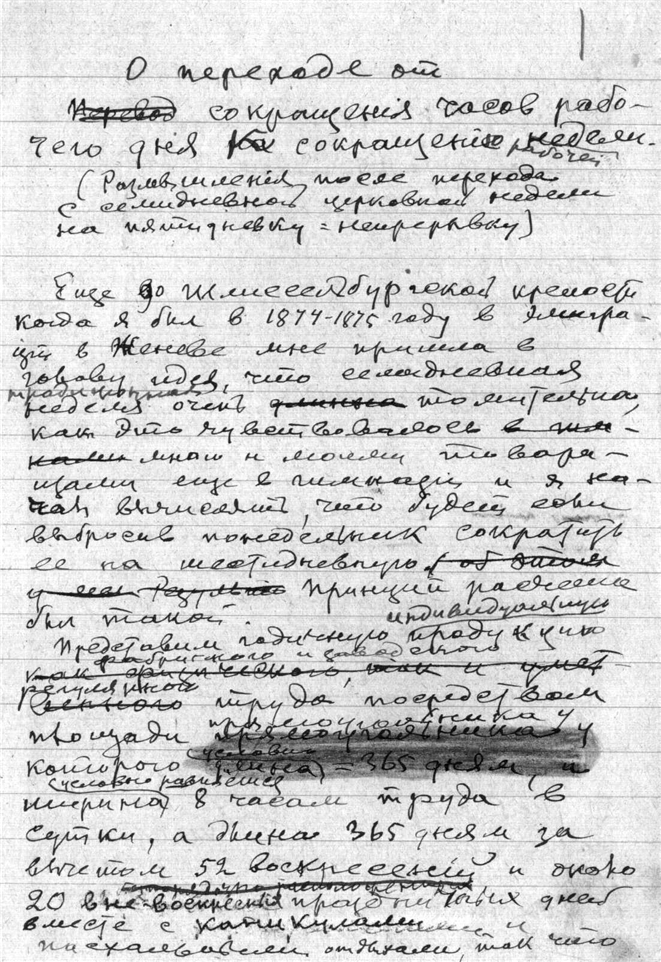 О переходе от
Перевод сокращенія часов рабо-
чего дня к сокращению рабочей недели.
(Размышленія после перехода
с семидневной церковной недели
на пятидневку = непрерывку)
Еще до Шлиссельбургской крепости
когда я был в 1874-1875 году в эмигра-
ции в Женеве мне пришла в
голову идея, что семидневная
неделя очень длинна томительна,
как это чувствовалось
мною и моими товари-
щами еще в гимназии и я на-
чал вычислять, что будет если
выбросив понедельник сократить
ее на шестидневную (об этом
Принцип расчета
был такой.
индивидуальную
Представим годичную продукцию
фабричного и заводского
как физического, так и умст-
венного труда посредством
площади прямоугольника у
которого = 365 дням, и
(условно равняется
ширина) 8 часам труда в
сутки, а длина 365 дням за
вычетом 52 воскресений и около
20 вне-воскресных праздничных дней
вместе с каникулами и
пасхальными отдыхами, так что